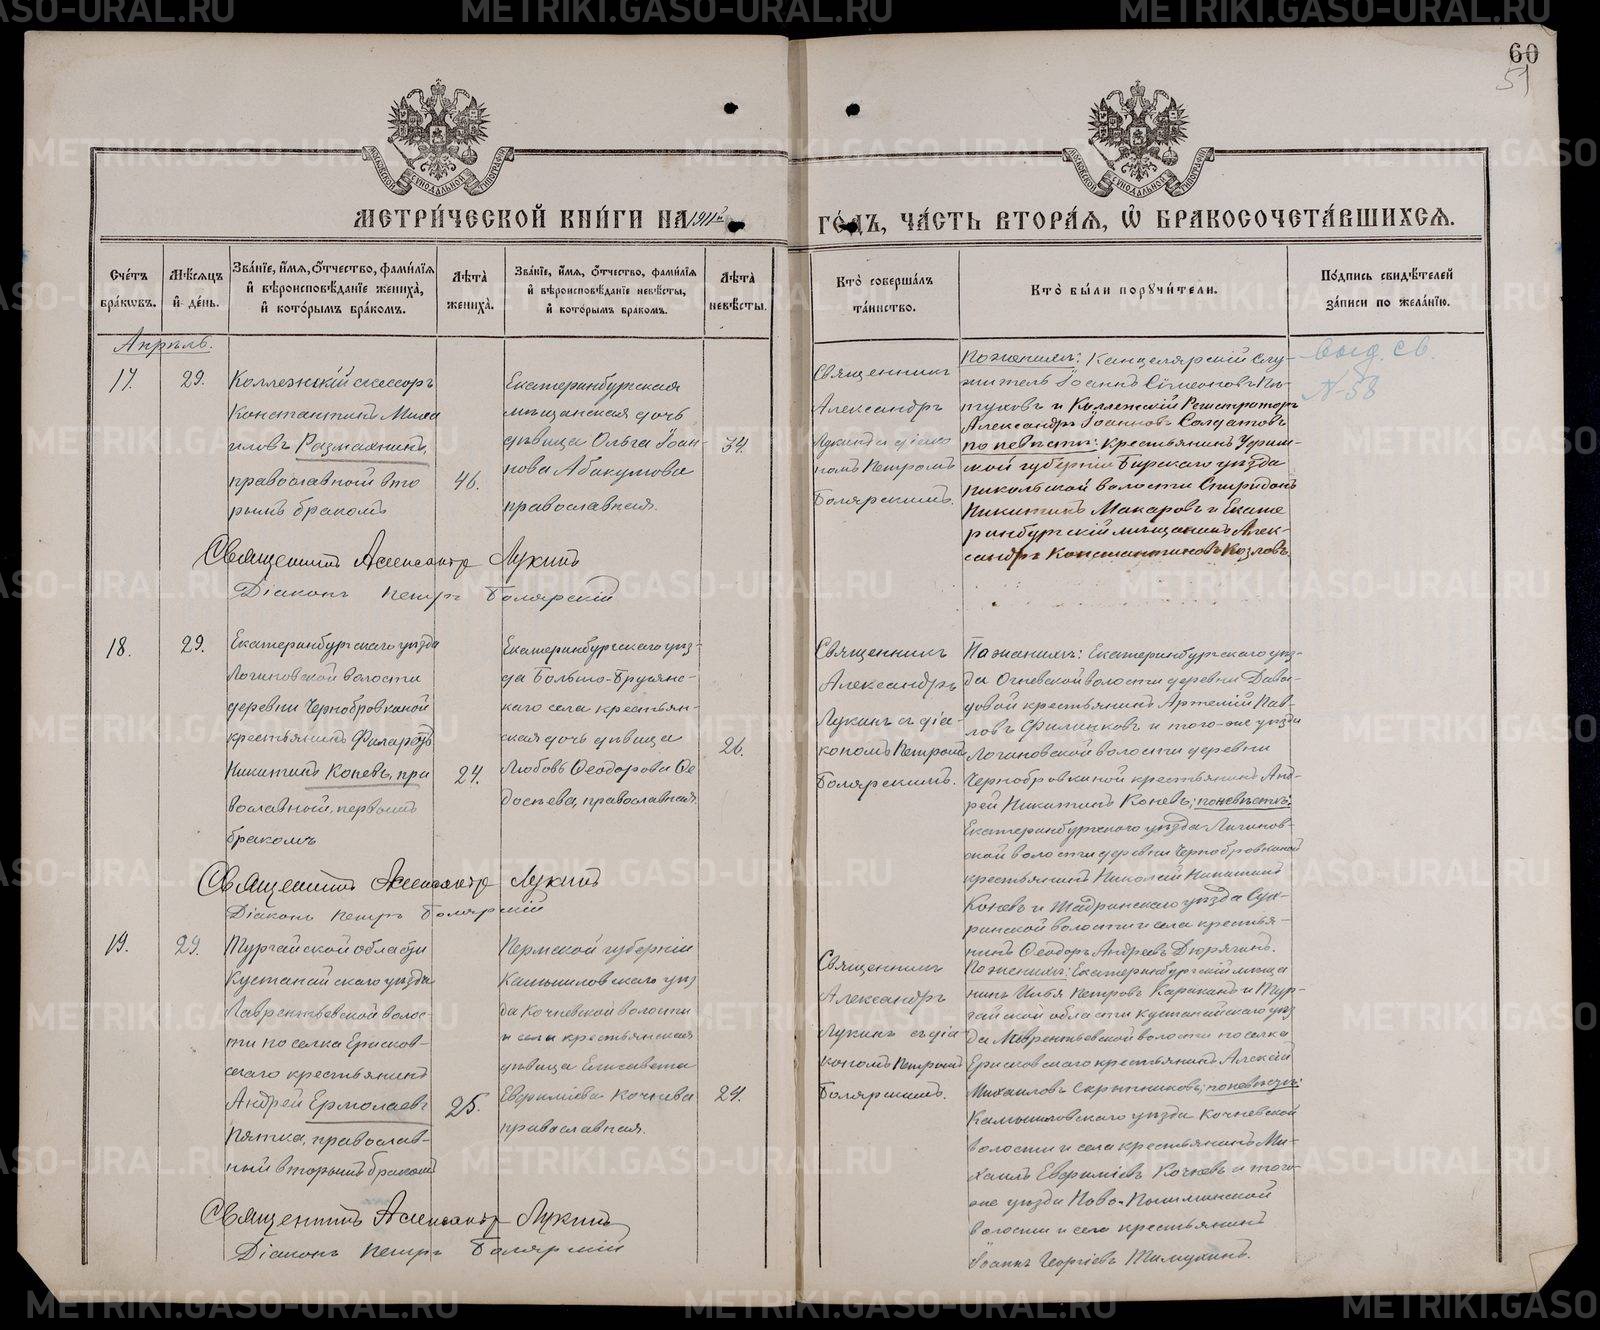 60
51
МОСКОВСКОЙ СѴНОДАЛЬНОЙ ТИПОГРАФІИ
МОСКОВСКОЙ СѴНОДАЛЬНОЙ ТИПОГРАФІИ
МЕТРИ́ЧЕСКОЙ КНИ́ГИ НА 1911й ГО́ДЪ, ЧА́СТЬ ВТОРА́Я, Ѽ БРАКОСОЧЕТА́ВШИХСЯ.
Сче́тъ бра́кѡвъ.
Мѣ́сяцъ и҆ де́нь.
Зва́нїе, и҆́мя, ѻ҆́тчество, фами́лїя и҆ вѣроисповѣ́данїе жениха̀, и҆ кото́рымъ бра́комъ.
Лѣ́та жениха̀.
Зва́нїе, и҆́мя, ѻ҆́тчество, фами́лїя и҆ вѣроисповѣ́данїе невѣ́сты, и҆ кото́рымъ бракомъ.
Лѣ́та невѣ́сты.
Кто̀ соверша́лъ та́инство.
Кто̀ бы́ли порꙋчи́тели.
По́дпись свидѣ́телей за́писи по жела́нїю.
Апрѣль.
17.
29.
Коллежскій ассесоръ
Константинъ Миха
иловъ Размахнинъ,
православной вто
рымъ бракомъ
46.
Екатеринбургская
мѣщанская дочь
дѣвица Ольга Іоан-
нова Абакумова
православная.
34.
Священникъ
Александръ
Лукинъ съ діако
номъ Петромъ
Болярскимъ.
По женихѣ: Канцелярскій слу-
житель Іоаннъ Сімеоновъ Пѣ-
туховъ и Коллежскій Регистраторъ
Александръ Іоанновъ Солдатовъ
по невѣстѣ: крестьянинъ Уфим-
ской губерніи Бирскаго уѣзда
Никольской волости Спиридонъ
Никитинъ Макаровъ и Екате
ринбургскій мѣщанинъ Алек-
сандръ Константиновъ Козловъ.
Выд. св.
№ 58
Священникъ Александръ Лукинъ
Діаконъ Петръ Болярскій
18.
29.
Екатеринбургскаго уѣзда
Логиновской волости
деревни Чернобровкиной
крестьянинъ Филаретъ
Никитинъ Коневъ, пра
вославной, первымъ
бракомъ
24.
Екатеринбургскаго уѣз-
да Больше-Брусянс-
каго села крестьян-
ская дочь дѣвица
Любовь Ѳеодорова Ѳе
досѣева, православная.
26.
Священникъ
Александръ
Лукинъ съ діа-
кономъ Петромъ
Болярскимъ.
По женихѣ: Екатеринбургскаго уѣз-
да Огневской волости деревни Давы-
довой крестьянинъ Артемій Пав-
ловъ Филинковъ и того-же уѣзда
Логиновской волости деревни
Чернобровкиной крестьянинъ Анд-
рей Никитинъ Коневъ; по невѣстѣ:
Екатеринбургскаго уѣзда Логинов-
ской волости деревни Чернобровкиной
крестьянинъ Николай Никитинъ
Коневъ и Шадринскаго уѣзда Сух-
ринской волости и села крестья-
нинъ Ѳеодоръ Андреевъ Дюрягинъ.
Священникъ Александръ Лукинъ
Діаконъ Петръ Болярскій
19.
29.
Тургайской области
Кустанайскаго уѣзда
Лаврентьевской волос-
ти поселка Ерисков-
скаго крестьянинъ
Андрей Ермолаевъ
Пятка, православ-
ный вторымъ бракомъ
25.
Пермской губерніи
Камышловскаго уѣз
да Кочневской волости
и села крестьянская
дѣвица Елисавета
Евфиміева Кочнева
православная.
24.
Священникъ
Александръ
Лукинъ съ діа
кономъ Петромъ
Болярскимъ.
По женихѣ: Екатеринбургскій мѣща
нинъ Илья Петровъ Каракинъ и Тур-
гайской области Кустанайскаго уѣз
да Лаврентьевской волости поселка
Ерисковскаго крестьянинъ Алексій
Михаиловъ Скрынниковъ; по невѣстѣ:
Камышловскаго уѣзда Кочневской
волости и села крестьянинъ Ми-
хаилъ Евфиміевъ Кочневъ и того-
же уѣзда Ново-Пышминской
волости и села крестьянинъ
Іоаннъ Георгіевъ Тимухинъ.
Священникъ Александръ Лукинъ
Діаконъ Петръ Болярскій
METRIKI.GASO-URAL.RU